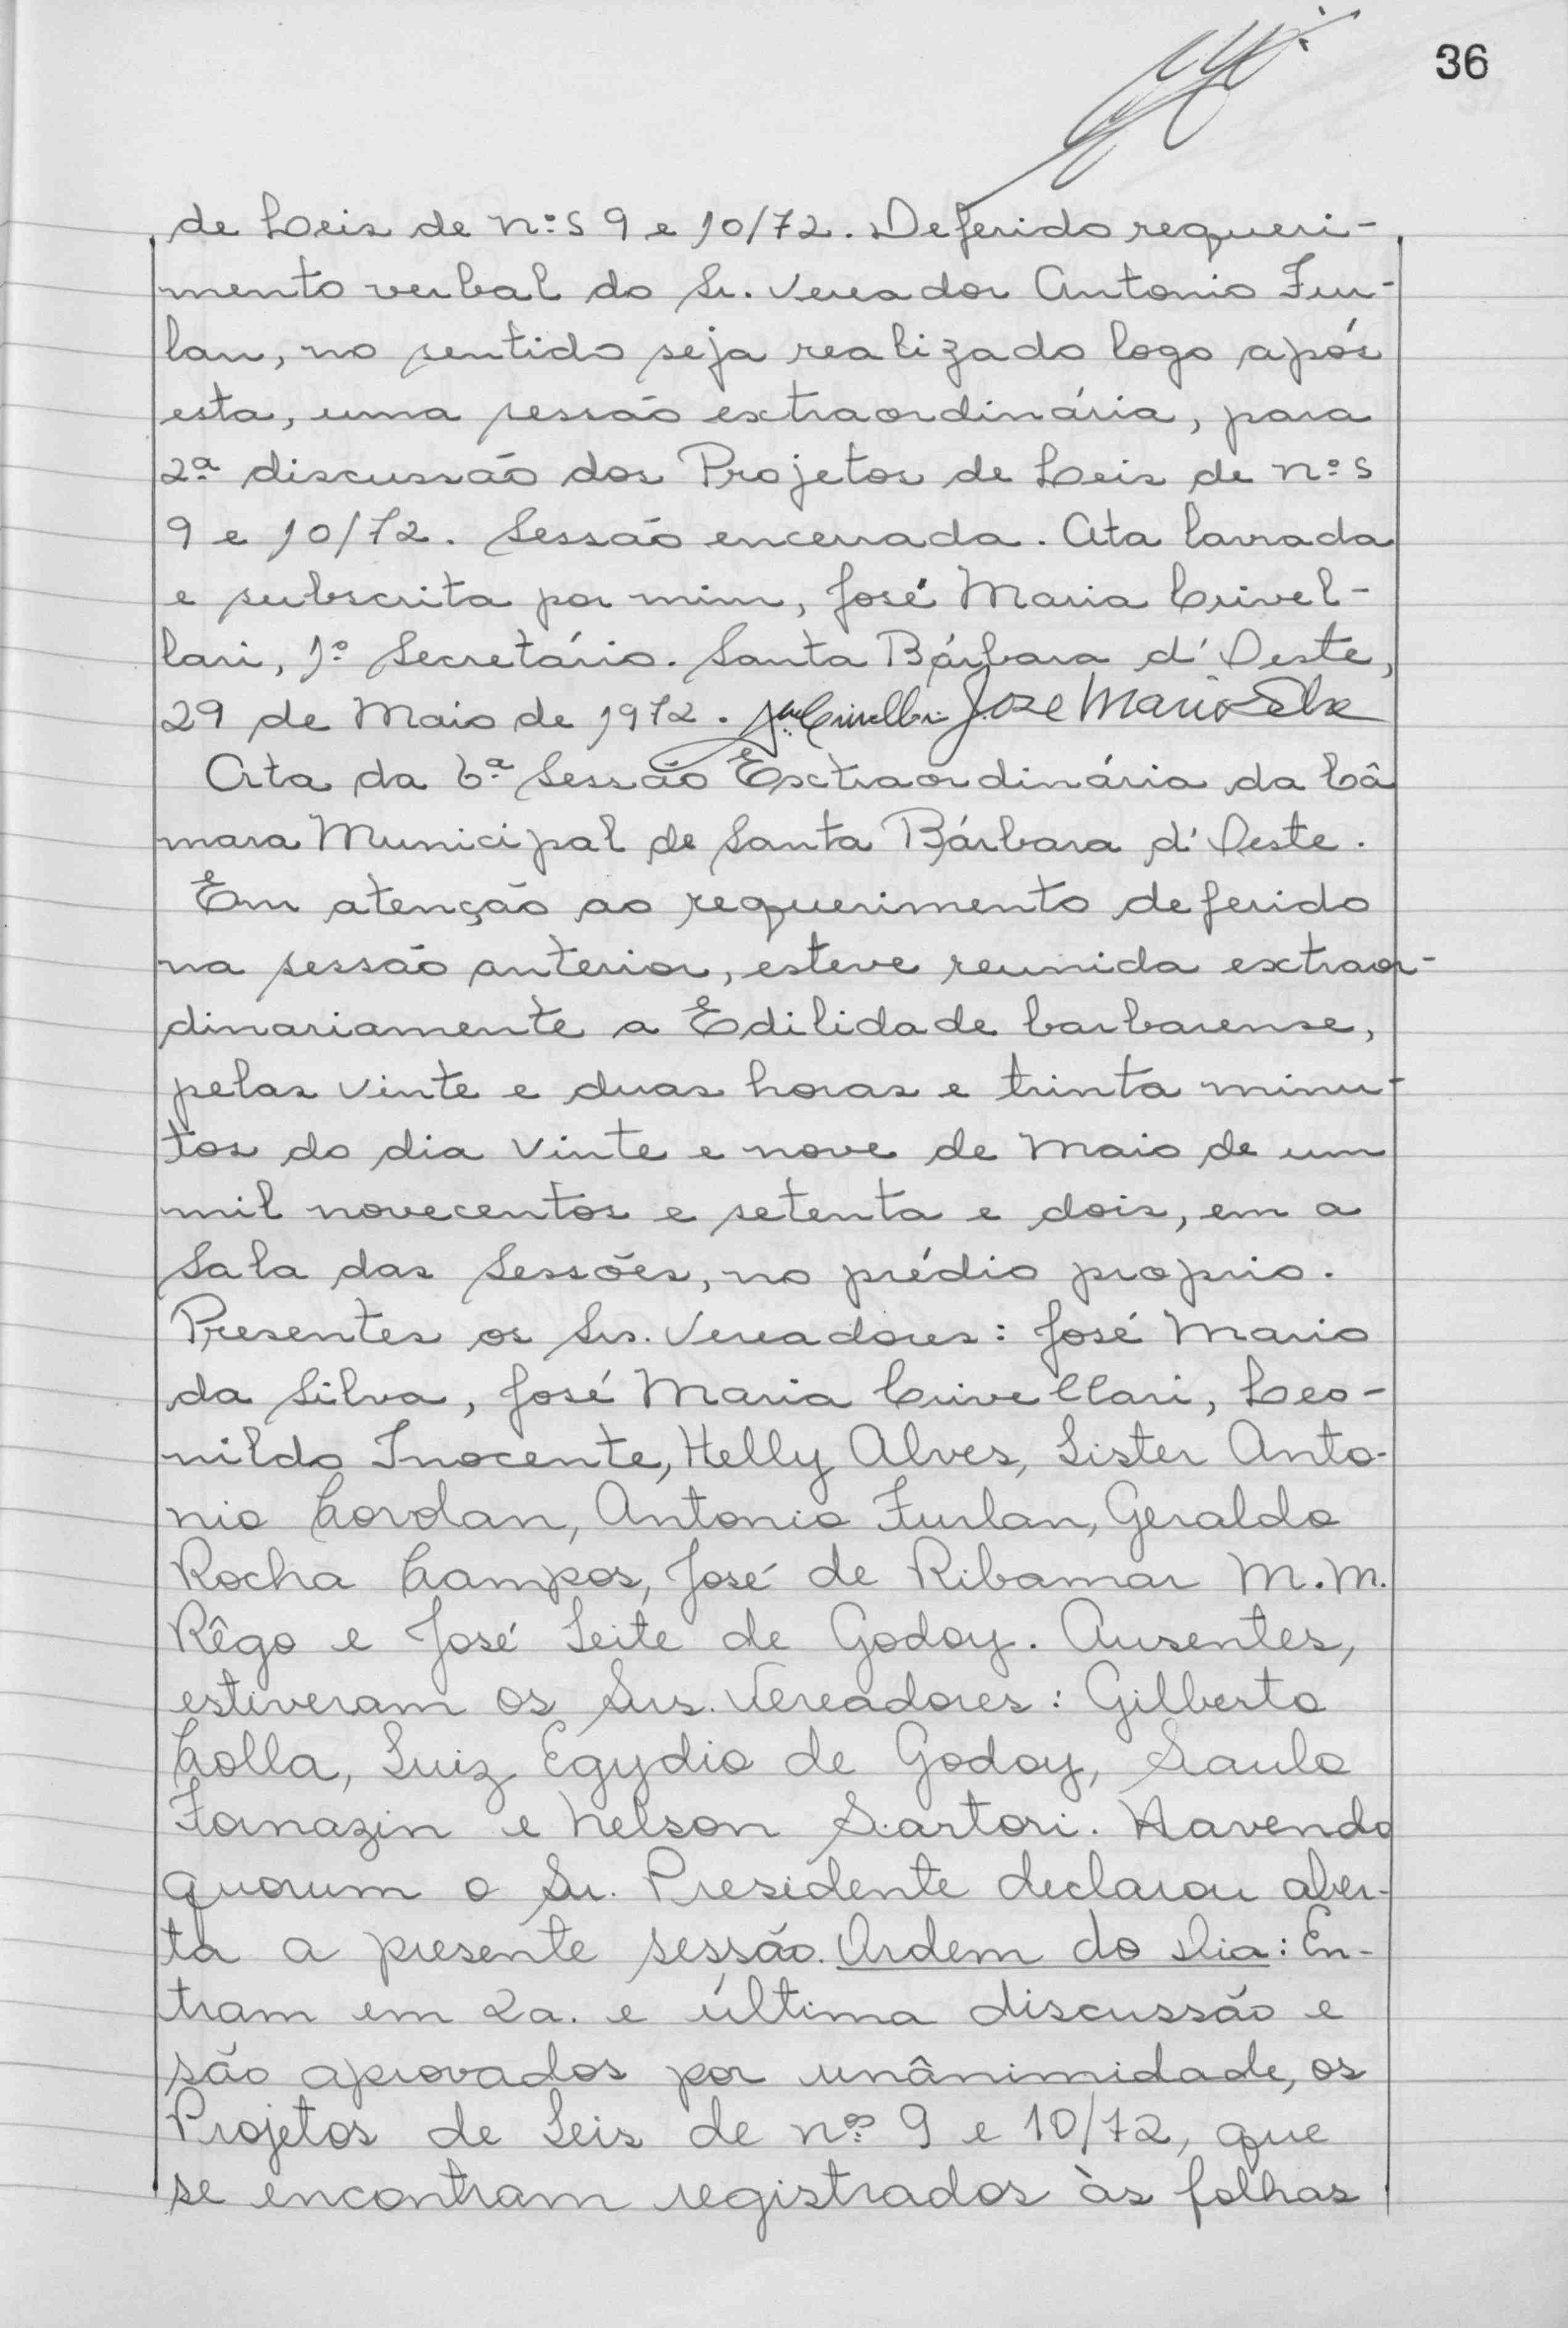 36
de Leis de n:s 9 e 10/72. Deferido requeri-
mento verbal do Sr. Vereador Antonio Fur-
lan, no sentido seja realizado logo após
esta, uma sessão extraordinária, para
2ª discussão dos Projetos de Leis de n:s
9 e 10/72. Sessão encerrada. Ata lavrada
e subscrita por mim, José Maria Crivel-
lari, 1º Secretário. Santa Bárbara d'Oeste,
29 de Maio de 1972. José Mario
Ata da 6ª Sessão Extraordinária da Câ
mara Municipal de Santa Bárbara d'Oeste.
Em atenção ao requerimento deferido
na sessão anterior, esteve reunida extraor-
dinariamente a Edilidade barbarense,
pelas vinte e duas horas e trinta minu-
tos do dia vinte e nove de Maio de um
mil novecentos e setenta e dois, em a
Sala das Sessões, no prédio proprio.
Presentes os Srs. Vereadores: José Mario
da Silva, José Maria Crivellari, Leo-
nildo Inocente, Helly Alves, Lister Anto-
nio Cordan, Antonio Furlan, Geraldo
Rocha Campos, José de Ribamar M.M.
Rêgo e José Leite de Godoy. Ausentes,
estiveram os Srs. Vereadores: Gilberto
Colla, Luiz Egydio de Godoy, Saulo
Fornazin e Nelson Sartori. Havendo
quorum o Sr. Presidente declarou aber-
ta a presente sessão. Ordem do Dia: En-
tram em 2a. e última discussão e
são aprovados por unânimidade, os
Projetos de Leis de nºs 9 e 10/72, que
se encontram registrados às folhas